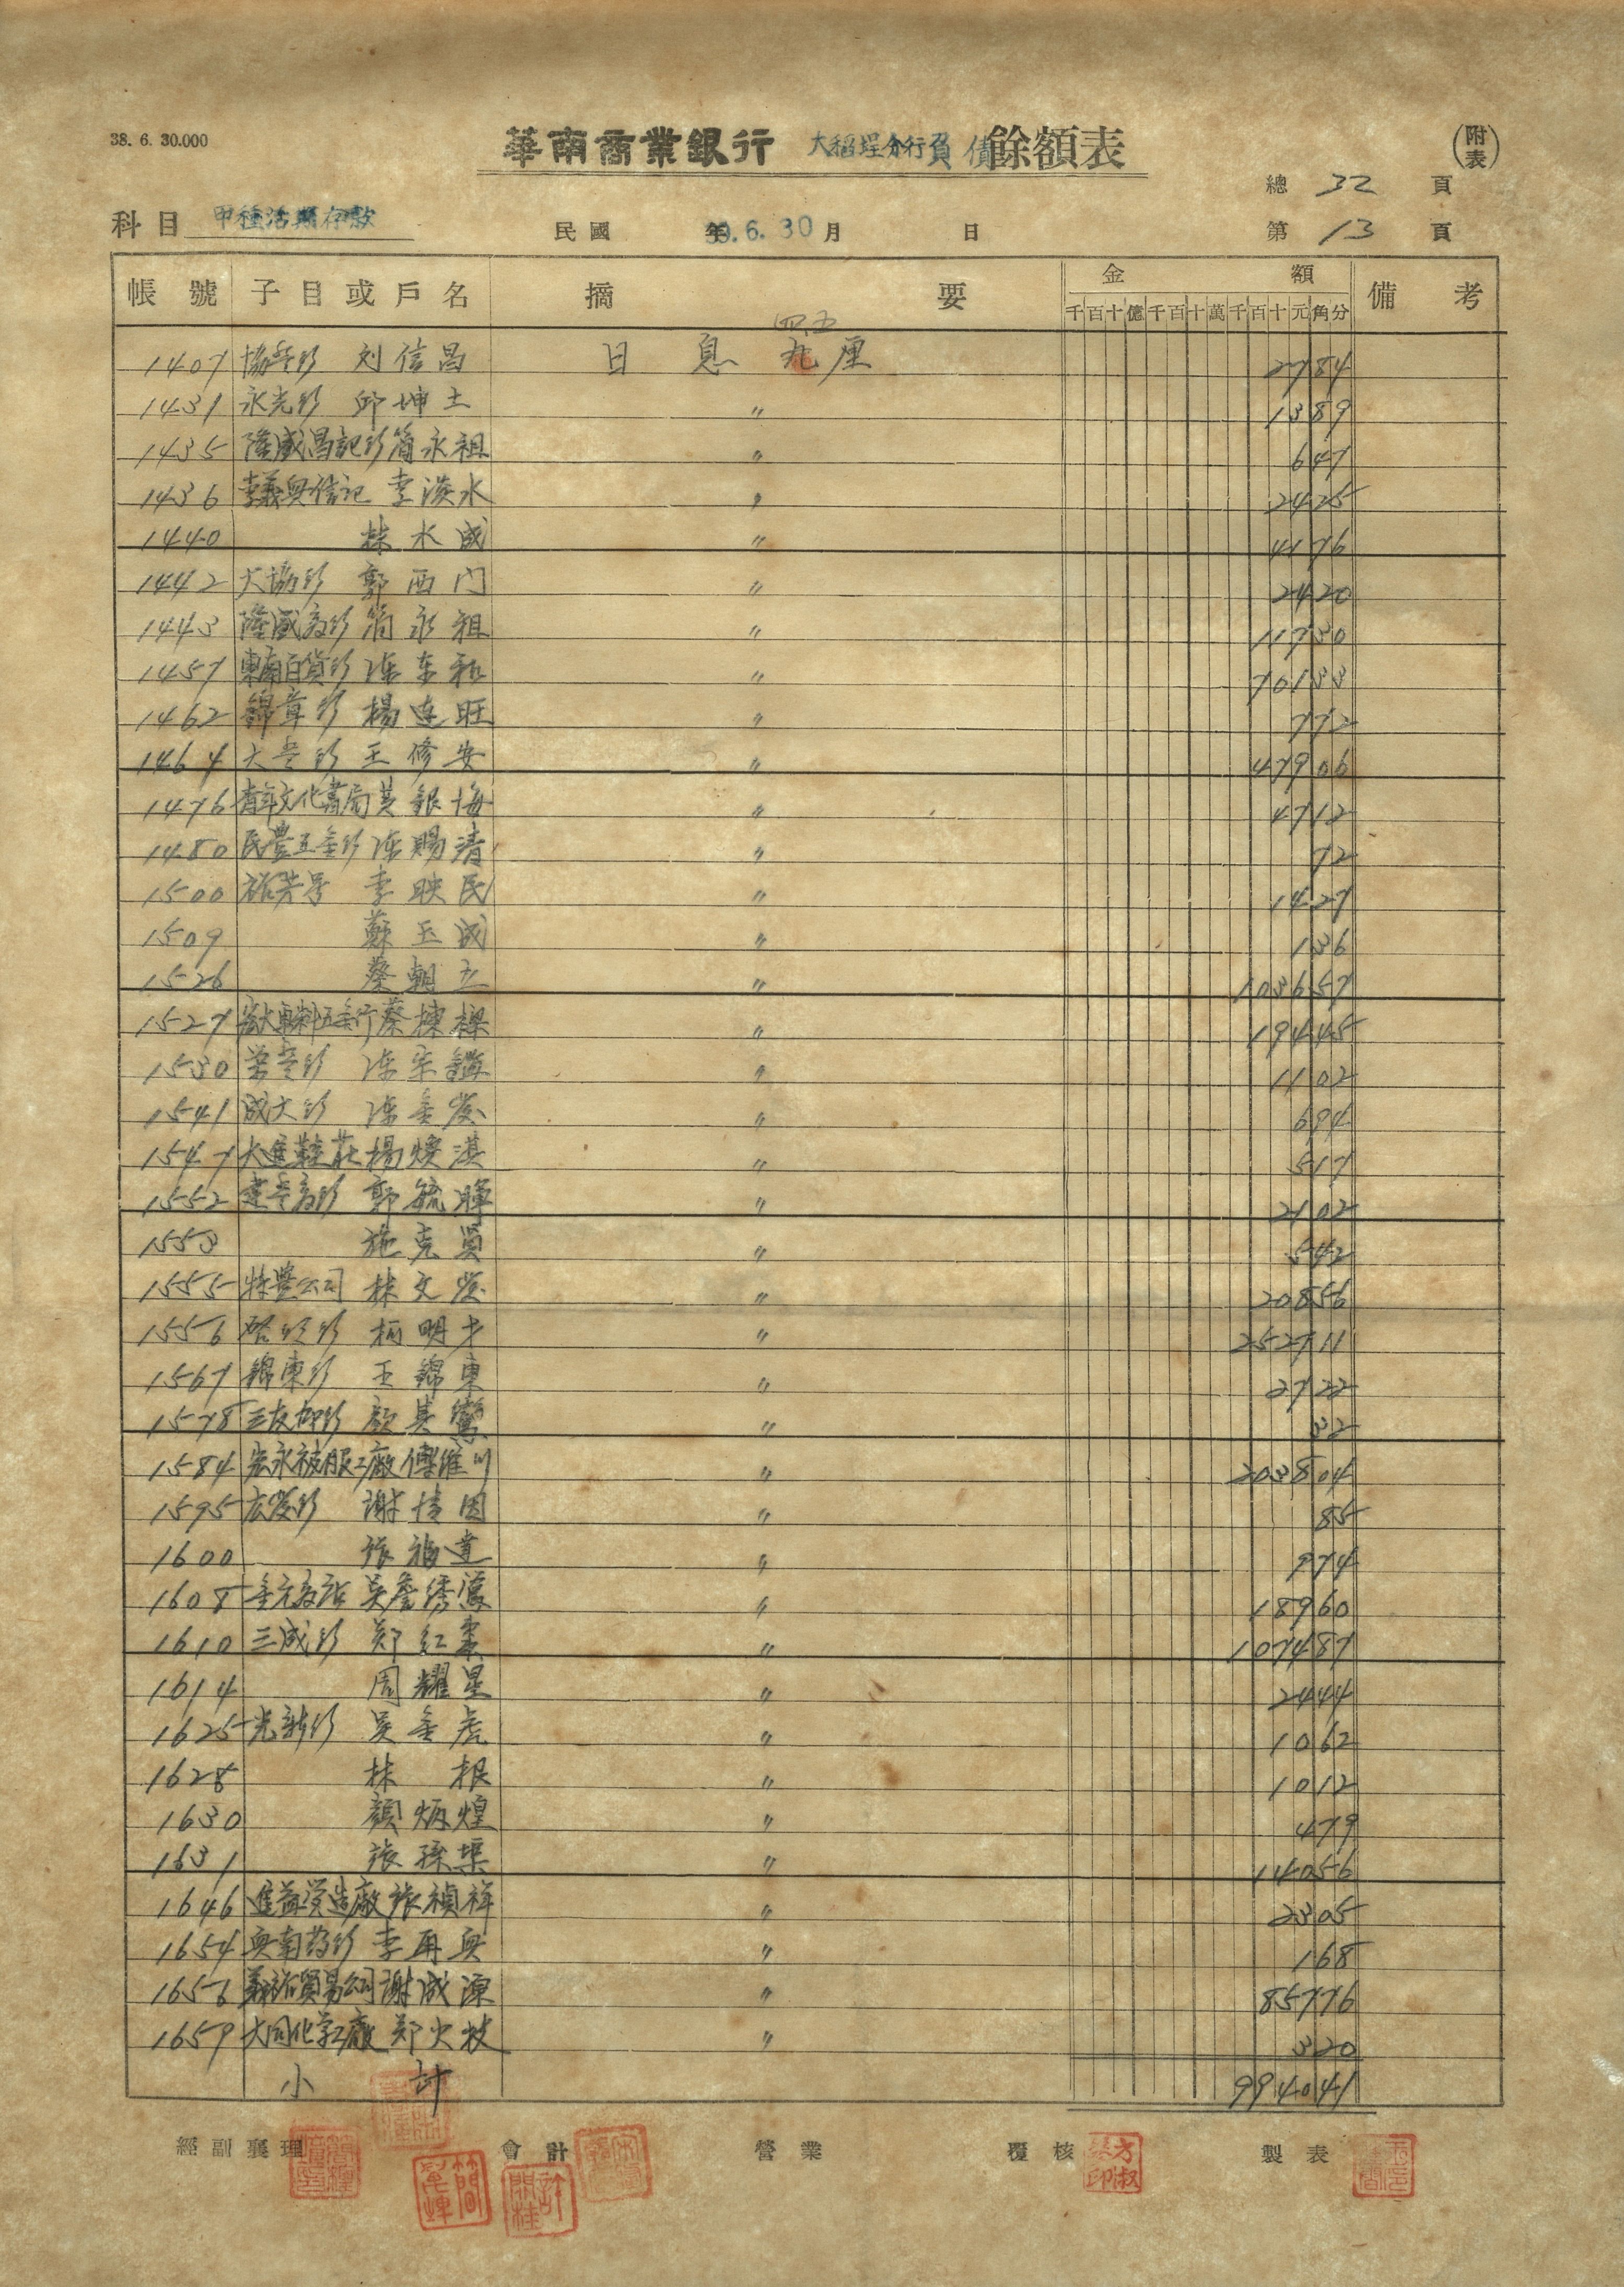 38. 6. 30.000
華南商業銀行 大稻埕分行負債餘額表 (附表)
總 32 頁
科目 甲種活期存款 民國 39.年 6. 30 月 日 第 13 頁
帳號 子目或戶名 摘要 金額 備考
千百十億千百十萬千百十元角分
四五
1407 刘信昌 日息 厘 2784
1431 永光行 邱坤土 〃 1389
1435 隆盛昌記行 簡永祖 〃 647
1436 李義興信記 李淡水 〃 2425
1440 林水成 〃 4176
1442 大協行 郭西门 〃 2420
1443 隆盛 簡永祖 〃 11730
1457 東南百貨行 陈东和 〃 70133
1462 錦章行 楊連旺 〃 772
1464 王修安 〃 47906
1476 青年文化書局 黄銀海 〃 4712
1480 民豊五金行 陈賜清 〃 72
1500 裕芳号 李映民 〃 1427
1509 蘇玉成 〃 136
1526 蔡朝立 〃 103657
1527 蔡棟樑 〃 19445
1530 陈宗鎮 〃 1102
1541 成大行 陈金发 〃 694
1547 大進鞋莊 楊燠淇 〃 517
1552 郭毓暉 〃 2102
1553 施克 〃 542
1555 特豊公司 林文发 〃 20856
1556 柯明才 〃 252711
1567 錦東行 王錦東 〃 2722
1578 顔 鶯 〃 32
1584 宏永被服工廠 傅維川 〃 203804
1595 広发行 謝情因 〃 85
1600 张福達 〃 974
1608 吴詹绣鶯 〃 18960
1610 三成行 郑红棗 〃 107487
1614 周耀星 〃 2444
1625 光新行 吴金虎 〃 1062
1628 林根 〃 1012
1630 顏炳煌 〃 479
1631 张孫渠 〃 14056
1646 進益漢造廠 张禎祥 〃 2305
1654 興南 李再興 〃 168
1656 義裕貿易公司 謝成源 〃 85776
1659 大同化学工廠 郑火枝 〃 320
小計 994041
經副襄理 會計 營業 覆核 製表